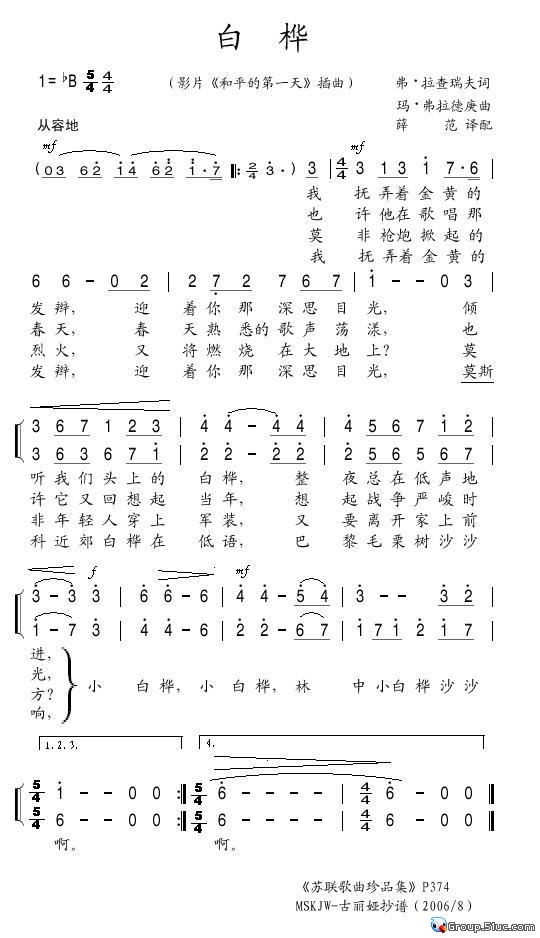 白 桦
1=♭B 5/4 4/4
（影片《和平的第一天》插曲）
弗·拉查瑞夫词
玛·弗拉德庚曲
薛 范 译配
从容地
mf mf
(03 62 14 62 1·7 ‖: 2/4 3·) 3 | 4/4 3 13 1 7·6 |
我 抚弄着金黄的
也 许他在歌唱那
莫 非枪炮掀起的
我 抚弄着金黄的
6 6 - 02 | 2 72 7 67 | 1 - - 03 |
发辫， 迎 着你那深思目光， 倾
春天， 春 天熟悉的歌声荡漾， 也
烈火， 又 将燃烧在大地上？ 莫
发辫， 迎 着你那深思目光， 莫斯
3 67 1 23 | 4 4 - 44 | 45 67 12 |
3 63 6 71 | 2 2 - 22 | 45 67 12 |
听我们头上的 白桦， 整 夜总在低声地
许它又回想起 当年， 想 起战争严峻时
非年轻人穿上 军装， 又 要离开家上前
科近郊白桦在 低语， 巴 黎毛栗树沙沙
f mf
3 - 3 3 | 6 6 - 6 | 4 4 - 54 | 3 - - 32 |
1 - 7 3 | 4 4 - 6 | 2 2 - 67 | 17 1 21 7 |
进，
光，
方？
响，
小 白桦， 小 白桦， 林 中小白桦沙沙
1. 2. 3. 4.
5/4 1 - - 0 0 :‖ 5/4 6 - - - - | 4/4 6 - 0 0 ‖
5/4 6 - - 0 0 :‖ 5/4 6 - - - - | 4/4 6 - 0 0 ‖
啊。 啊。
《苏联歌曲珍品集》P374
MSKJW-古丽娅抄谱（2006/8）
Group.51uc.com